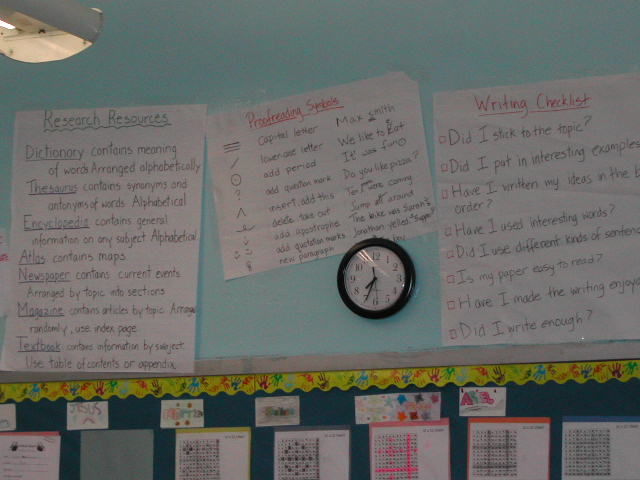 Research Resources
Dictionary contains meaning
of words Arranged alphabetically
Thesaurus contains synonyms and
antonyms of words Alphabetical
Encyclopedia contains general
information on any subject Alphabetical
Atlas contains maps
Newspaper contains current events
Arranged by topic into sections
Magazine contains articles by topic Arranged
randomly, use index page.
Textbook contains information by subject.
Use table of contents or appendix
Proofreading Symbols
capital letter Max smith
lowercase letter We like to Eat
add period It was fun
? add question mark Do you like pizza?
insert, add this coming
delete take out Jump around
add apostrophe The bike was Sarah's
add quotation marks Jonathan yelled "
new paragraph
Writing Checklist
Did I stick to the topic?
Did I put in interesting examples
Have I written my ideas in the
order?
Have I used interesting words?
Did I use different kinds of senten
Is my paper easy to read?
Have I made the writing enjoy
Did I write enough?
12 1 2 3 4 5 6 7 8 9 10 11
JESUS